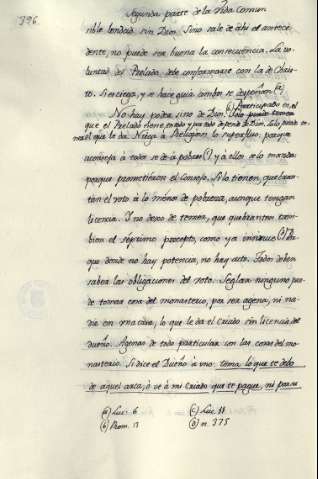 396
Segunda parte de la Vida Comun
rible bondad sin Dios. Sino sale de ahi el antece-
dente, no puede ser buena la consecuencia. La vo-
luntad del Prelado, debe conformarse con la de Chris-
to. Si es ciega, y se hace guia ambos se despeñan (a)
No hay poder sino de Dios. (b) Participado es el
que el Prelado tiene,
el que le da. Niega à Religiosos lo superfluo, porque
aconseja à todos se de à pobres (c), y à ellos se lo manda:
porque prometieron el Consejo. Si lo tienen, quebran-
tan el voto à lo menos de pobreza, aunque tengan
licencia. Y no dexo de temer, que quebranten tam-
bien el séptimo precepto, como ya insinuè (d) Por
que donde no hay potencia, no hay acto. Todos deben
saber las obligaciones del voto. Seglar ninguno pue-
de tomar cosa del monasterio, por ser agena, ni na-
die en una casa, lo que le da el Criado sin licencia del
dueño. Agenas de todo particular son las cosas del mo-
nasterio. Si dice el Dueño à uno: toma lo que te debo
de aquel arca, ò ve à mi Criado que te pague, ni para
(a) Luc. 6 (c) Luc. 11
(b) Rom. 13 (d) n. 375